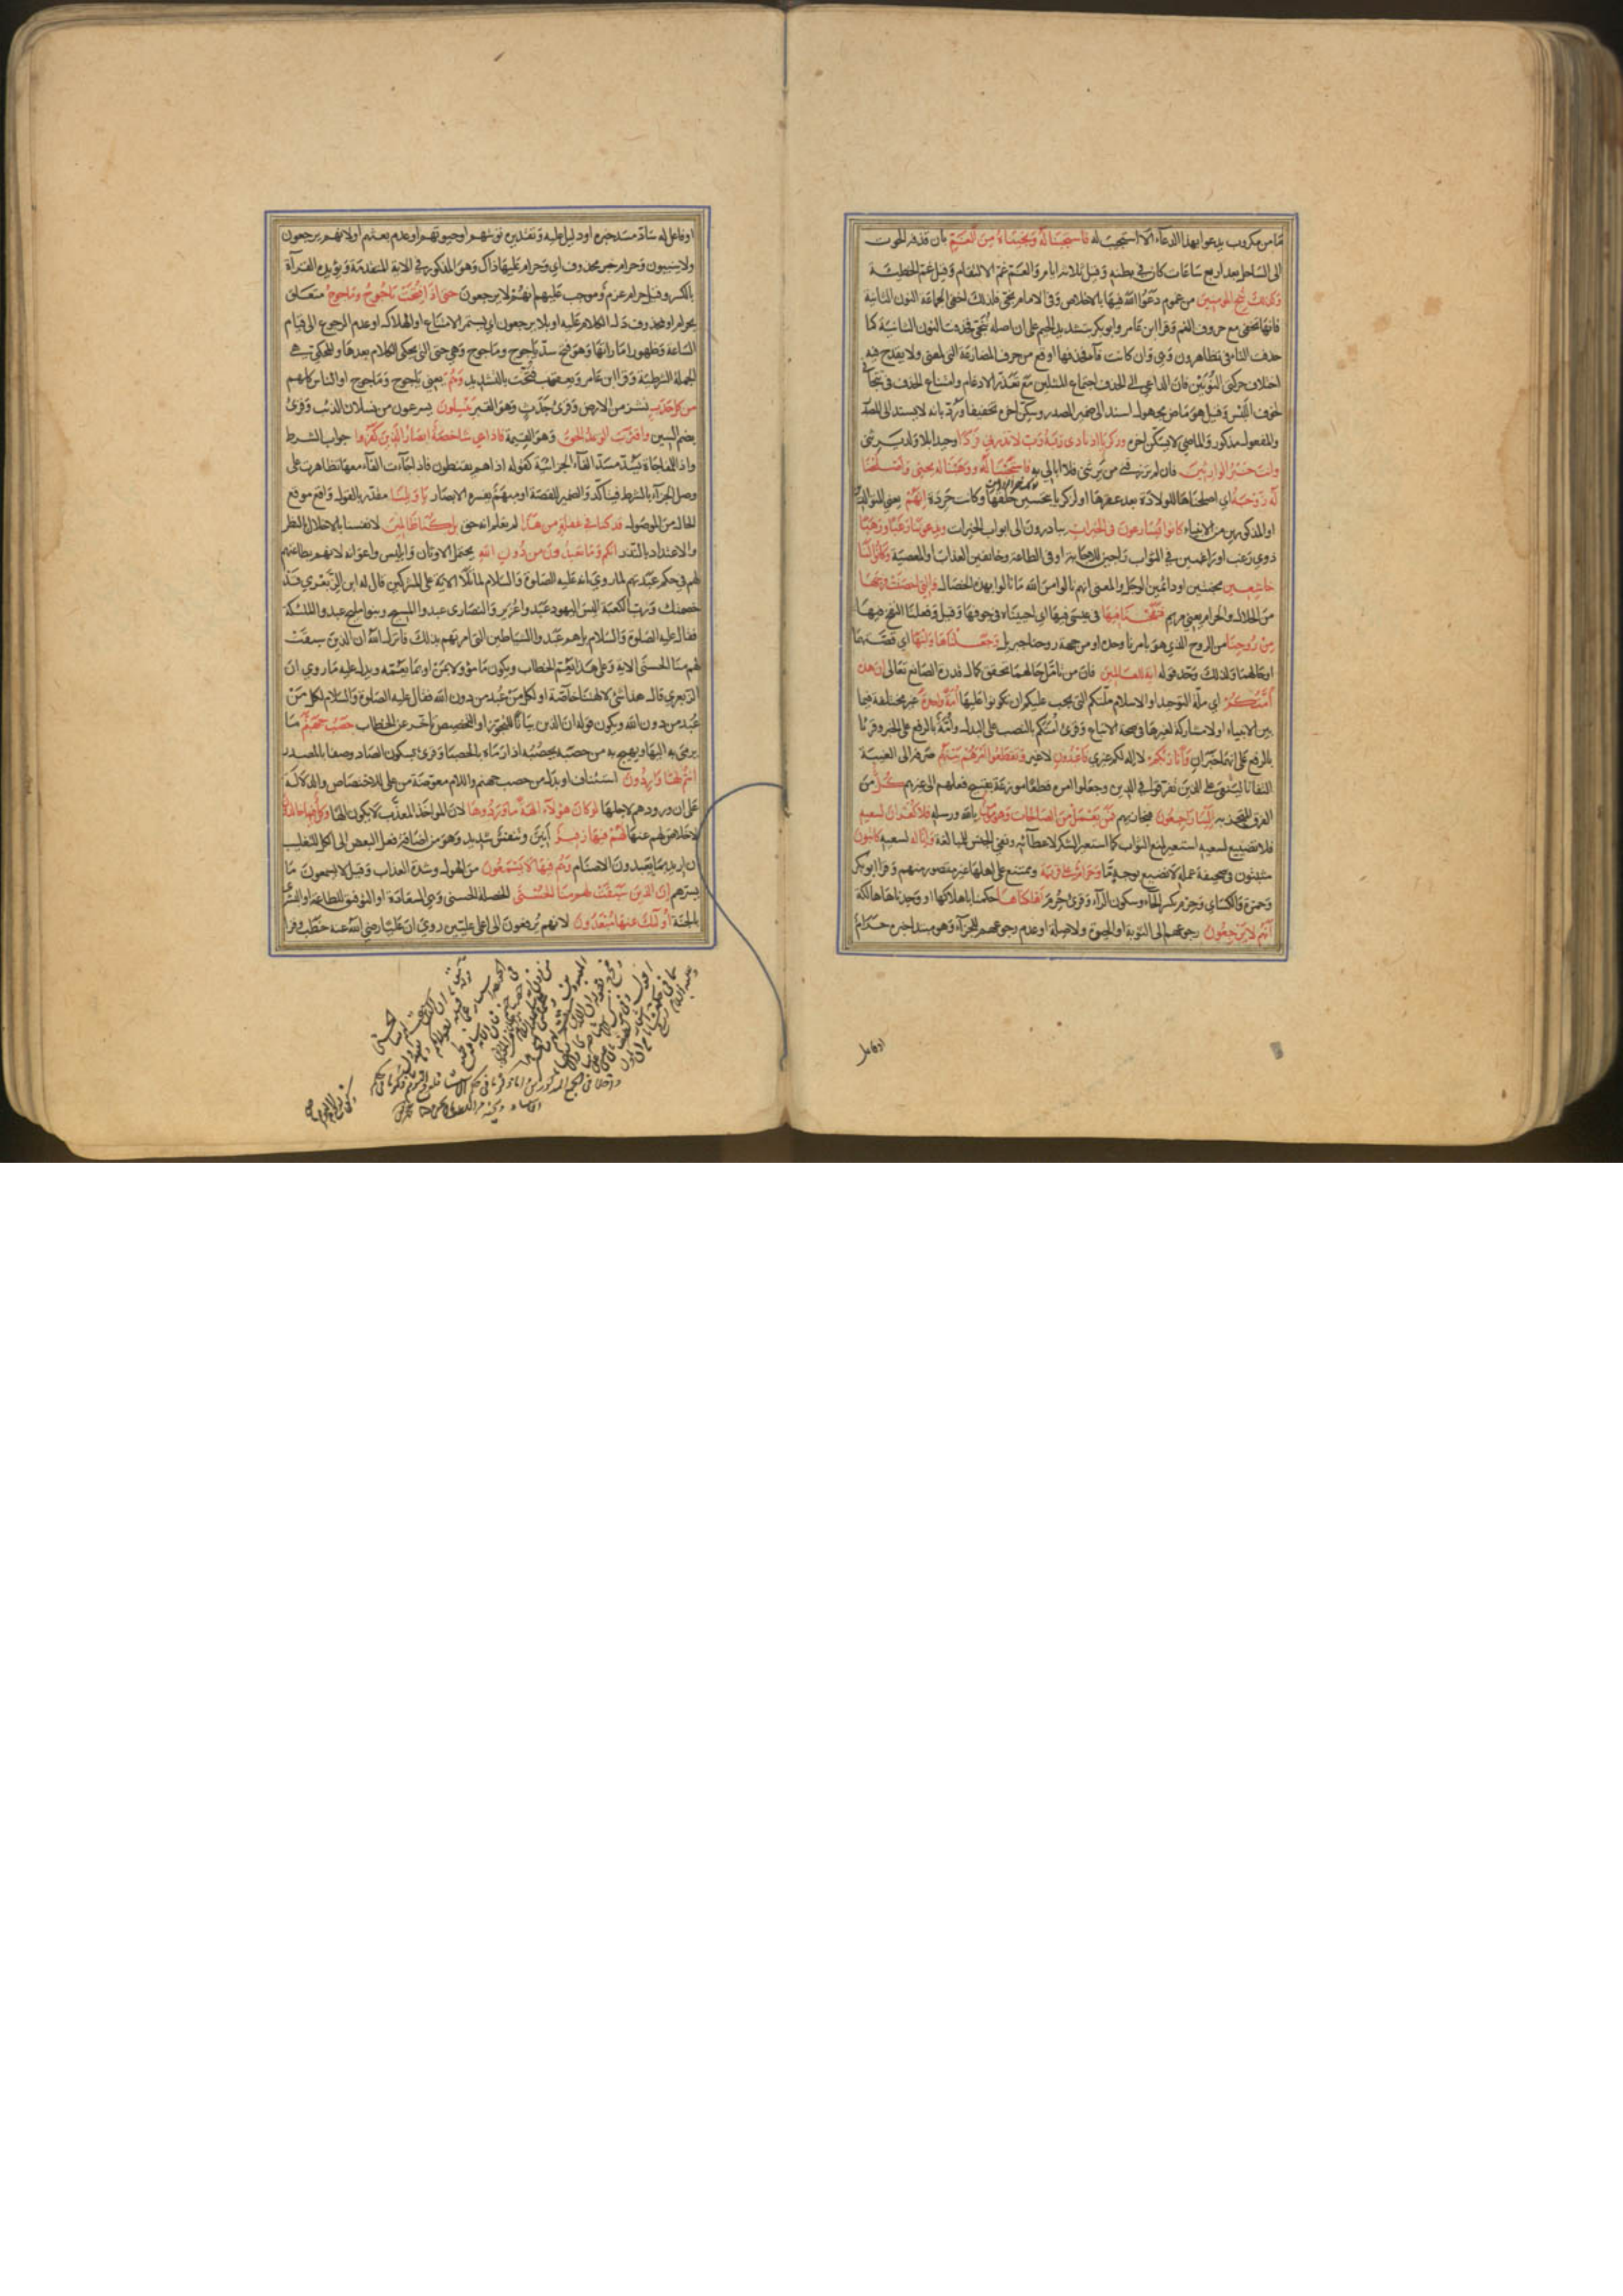 ما من مكروب يدعو بهذا الدعاء الا استجيب له فاستجبنا له ونجيناه من الغم بان قذفه الحوت
الى الساحل بعد اربع ساعات كان في بطنه وقيل ثلاثة ايام والغم غم الالتقام وقيل غم الخطيئة
وكذلك ننجي المؤمنين من غموم دعوا الله فيها بالاخلاص وفي الامام نجي فلذلك اخفى الجماعة النون الثانية
فانها تخفى مع حروف الفم وقرا ابن عامر وابو بكر بتشديد الجيم على ان اصله ننجي فحذفت النون الثانية كما
حذف التاء في تظاهرون وهي وان كانت فاء فحذفها اوقع من حرف المضارعة التي لمعنى ولا يقدح فيه
اختلاف حركتي النونين فان الداعي الى الحذف اجتماع المثلين مع تعذر الادغام وامتناع الحذف في تتجافى
لخوف اللبس وقيل هو ماض مجهول اسند الى ضمير المصدر وسكن اخره تخفيفا ورد بانه لا يسند الى المصدر
والمفعول مذكور والماضي لا يسكن اخره وزكريا اذ نادى ربه رب لا تذرني فردا وحيدا بلا ولد يرثني
وانت خير الوارثين فان لم ترزقني من يرثني فلا ابالي به فاستجبنا له ووهبنا له يحيى واصلحنا
له زوجه اي اصلحناها للولادة بعد عقرها او لزكريا بتحسين خلقها وكانت حردة انهم يعني المتوالدين
او المذكورين من الانبياء كانوا يسارعون في الخيرات يبادرون الى ابواب الخيرات ويدعوننا رغبا ورهبا
ذوي رغب او راغبين في الثواب راجين للاجابة او في الطاعة وخائفين العذاب او المعصية وكانوا لنا
خاشعين مخبتين او دائمين الوجل والمعنى انهم نالوا من الله ما نالوا بهذه الخصال والتي احصنت فرجها
من الحلال والحرام يعني مريم فنفخنا فيها في عيسى فيها اي احييناه في جوفها وقيل وفعلنا النفخ فيها
من روحنا من الروح الذي هو بامرنا وحده او من جهة روحنا جبريل وجعلناها وابنها اي قصتهما
او حالهما ولذلك وحد قوله اية للعالمين فان من تامل حالهما تحقق كمال قدرة الصانع تعالى ان هذه
امتكم اي ملة التوحيد او الاسلام ملتكم التي يجب عليكم ان تكونوا عليها امة واحدة غير مختلفة فيما
بين الانبياء او لا مشاركة لغيرها في صحة الاتباع وقرئ امتكم بالنصب على البدل وامة بالرفع على الخبر وقرئتا
بالرفع على انهما خبران وانا ربكم لا اله لكم غيري فاعبدون لا غير وتقطعوا امرهم بينهم صرفه الى الغيبة
التفاتا لينعي على الذين تفرقوا في الدين وجعلوا امره قطعا موزعة بقبيح فعلهم الى غيرهم كل من
الفرق المتحزبة الينا راجعون فنجازيهم فمن يعمل من الصالحات وهو مؤمن بالله ورسله فلا كفران لسعيه
فلا تضييع لسعيه استعير لمنع الثواب كما استعير الشكر لاعطائه ونفى الجنس للمبالغة وانا له لسعيه كاتبون
مثبتون في صحيفة عمله لا نضيع بوجه ما وحرام على قرية وممتنع على اهلها غير متصور منهم وقرا ابو بكر
وحمزة والكسائي وحرم بكسر الحاء وسكون الراء وقرئ حرم اهلكناها حكمنا باهلاكها او وجدناها هالكة
انهم لا يرجعون رجوعهم الى التوبة او الحيوة ولا صلة او عدم رجوعهم للجزاء وهو مبتدا خبره حرام
او فاعل
او فاعل له ساد مسد خبره او دليل عليه وتقديره توبتهم او حيوتهم او عدم بعثهم او لانهم يرجعون
ولا ينيبون وحرام خبر محذوف اي وحرام عليها ذاك وهو المذكور في الاية المتقدمة ويؤيده القراءة
بالكسر وقيل حرام عزم وموجب عليهم انهم لا يرجعون حتى اذا فتحت ياجوج وماجوج متعلق
بحرام او بمحذوف دل الكلام عليه او بلا يرجعون اي يستمر الامتناع او الهلاك او عدم الرجوع الى قيام
الساعة وظهور اماراتها وهو فتح سد ياجوج وماجوج وهي حتى التي يحكى الكلام بعدها والمحكي هي
الجملة الشرطية وقرا ابن عامر ويعقوب فتحت بالتشديد وهم يعني ياجوج وماجوج او الناس كلهم
من كل حدب نشز من الارض وقرئ جدث وهو القبر ينسلون يسرعون من نسلان الذئب وقرئ
بضم السين واقترب الوعد الحق وهو القيمة فاذا هي شاخصة ابصار الذين كفروا جواب الشرط
واذا للمفاجاة يسد مسد الفاء الجزائية كقوله اذا هم يقنطون فاذا جاءت الفاء معها تظاهرت على
وصل الجزاء بالشرط فيتاكد والضمير للقصة او مبهم يفسره الابصار يا ويلنا مقدر بالقول واقع موقع
الحال من الموصول قد كنا في غفلة من هذا لم نعلم انه حق بل كنا ظالمين لانفسنا بالاخلال بالنظر
والاعتداد بالنذر انكم وما تعبدون من دون الله يحتمل الاوثان وابليس واعوانه لانهم بطاعتهم
لهم في حكم عبدتهم لما روي انه عليه الصلوة والسلام لما تلا الاية على المشركين قال له ابن الزبعرى قد
خصمتك ورب الكعبة اليس اليهود عبدوا عزير والنصارى عبدوا المسيح وبنو مليح عبدوا الملئكة
فقال عليه الصلوة والسلام بل هم عبدوا الشياطين التي امرتهم بذلك فانزل الله ان الذين سبقت
لهم منا الحسنى الاية وعلى هذا يعم الخطاب ويكون ما مؤولا بمن او بما يعمه ويدل عليه ما روي ان
الزبعرى قال هذا شئ لالهتنا خاصة او لكل من عبد من دون الله فقال عليه الصلوة والسلام لكل من
عبد من دون الله ويكون قوله ان الذين بيانا للتجوز او للتخصيص تاخر عن الخطاب حصب جهنم ما
يرمى به اليها ويهيج به من حصبه يحصبه اذا رماه بالحصباء وقرئ بسكون الصاد وصفا بالمصدر
انتم لها واردون استئناف او بدل من حصب جهنم واللام معوضة من على للاختصاص والدلالة
على ان ورودهم لاجلها لو كان هؤلاء الهة ما وردوها لان المؤاخذ المعذب لا يكون الها وكل فيها خالدون
لا خلاص لهم عنها لهم فيها زفير انين وتنفس شديد وهو من اضافة فعل البعض الى الكل للتغليب
ان اريد بما تعبدون الاصنام وهم فيها لا يسمعون من الهول وشدة العذاب وقيل لا يسمعون ما
يسرهم ان الذين سبقت لهم منا الحسنى الخصلة الحسنى وهي السعادة او التوفيق للطاعة او البشرى
بالجنة اولئك عنها مبعدون لانهم يرفعون الى اعلى عليين روي ان عليا رضي الله عنه خطب وقرا